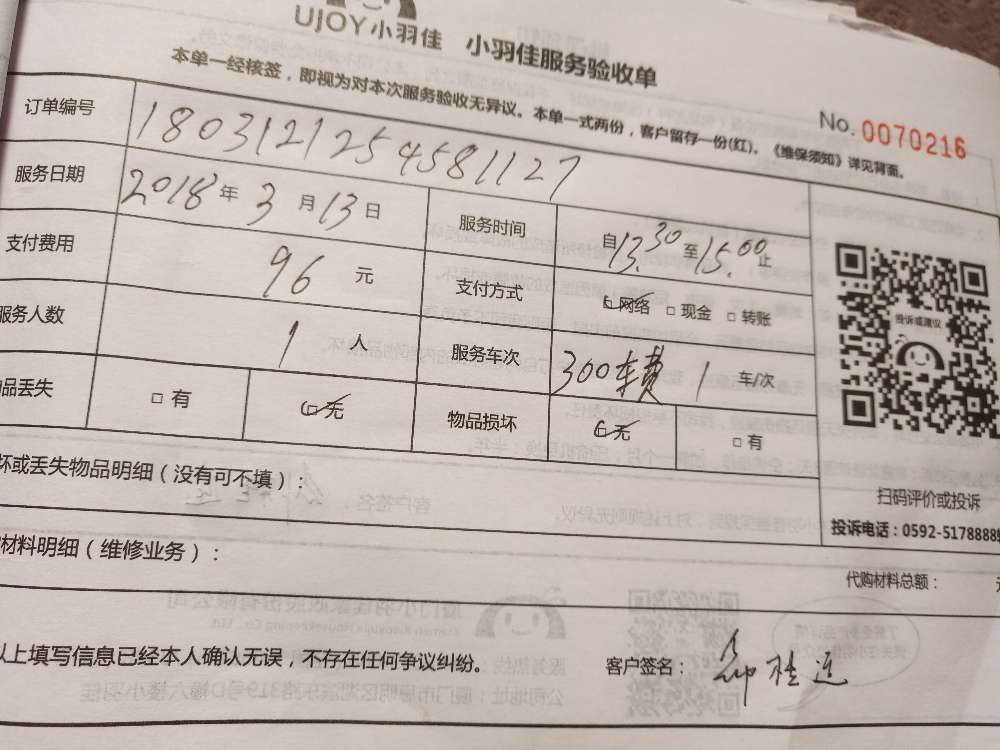 UJOY小羽佳 小羽佳服务验收单
本单一经核签，即视为对本次服务验收无异议。本单一式两份，客户留存一份(红)。《维保须知》详见背面。
No. 0070216
订单编号 1803121254581127
服务日期 2018年3月13日 服务时间 自13.30至15.00止
支付费用 96元 支付方式 □网络 □现金 □转账
服务人数 1人 服务车次 300车费 1 车/次
品丢失 □有 □无 物品损坏 □无 □有
坏或丢失物品明细（没有可不填）：
材料明细（维修业务）：
代购材料总额：
投诉或建议
扫码评价或投诉
投诉电话：0592-5178888
以上填写信息已经本人确认无误，不存在任何争议纠纷。 客户签名： 桂连